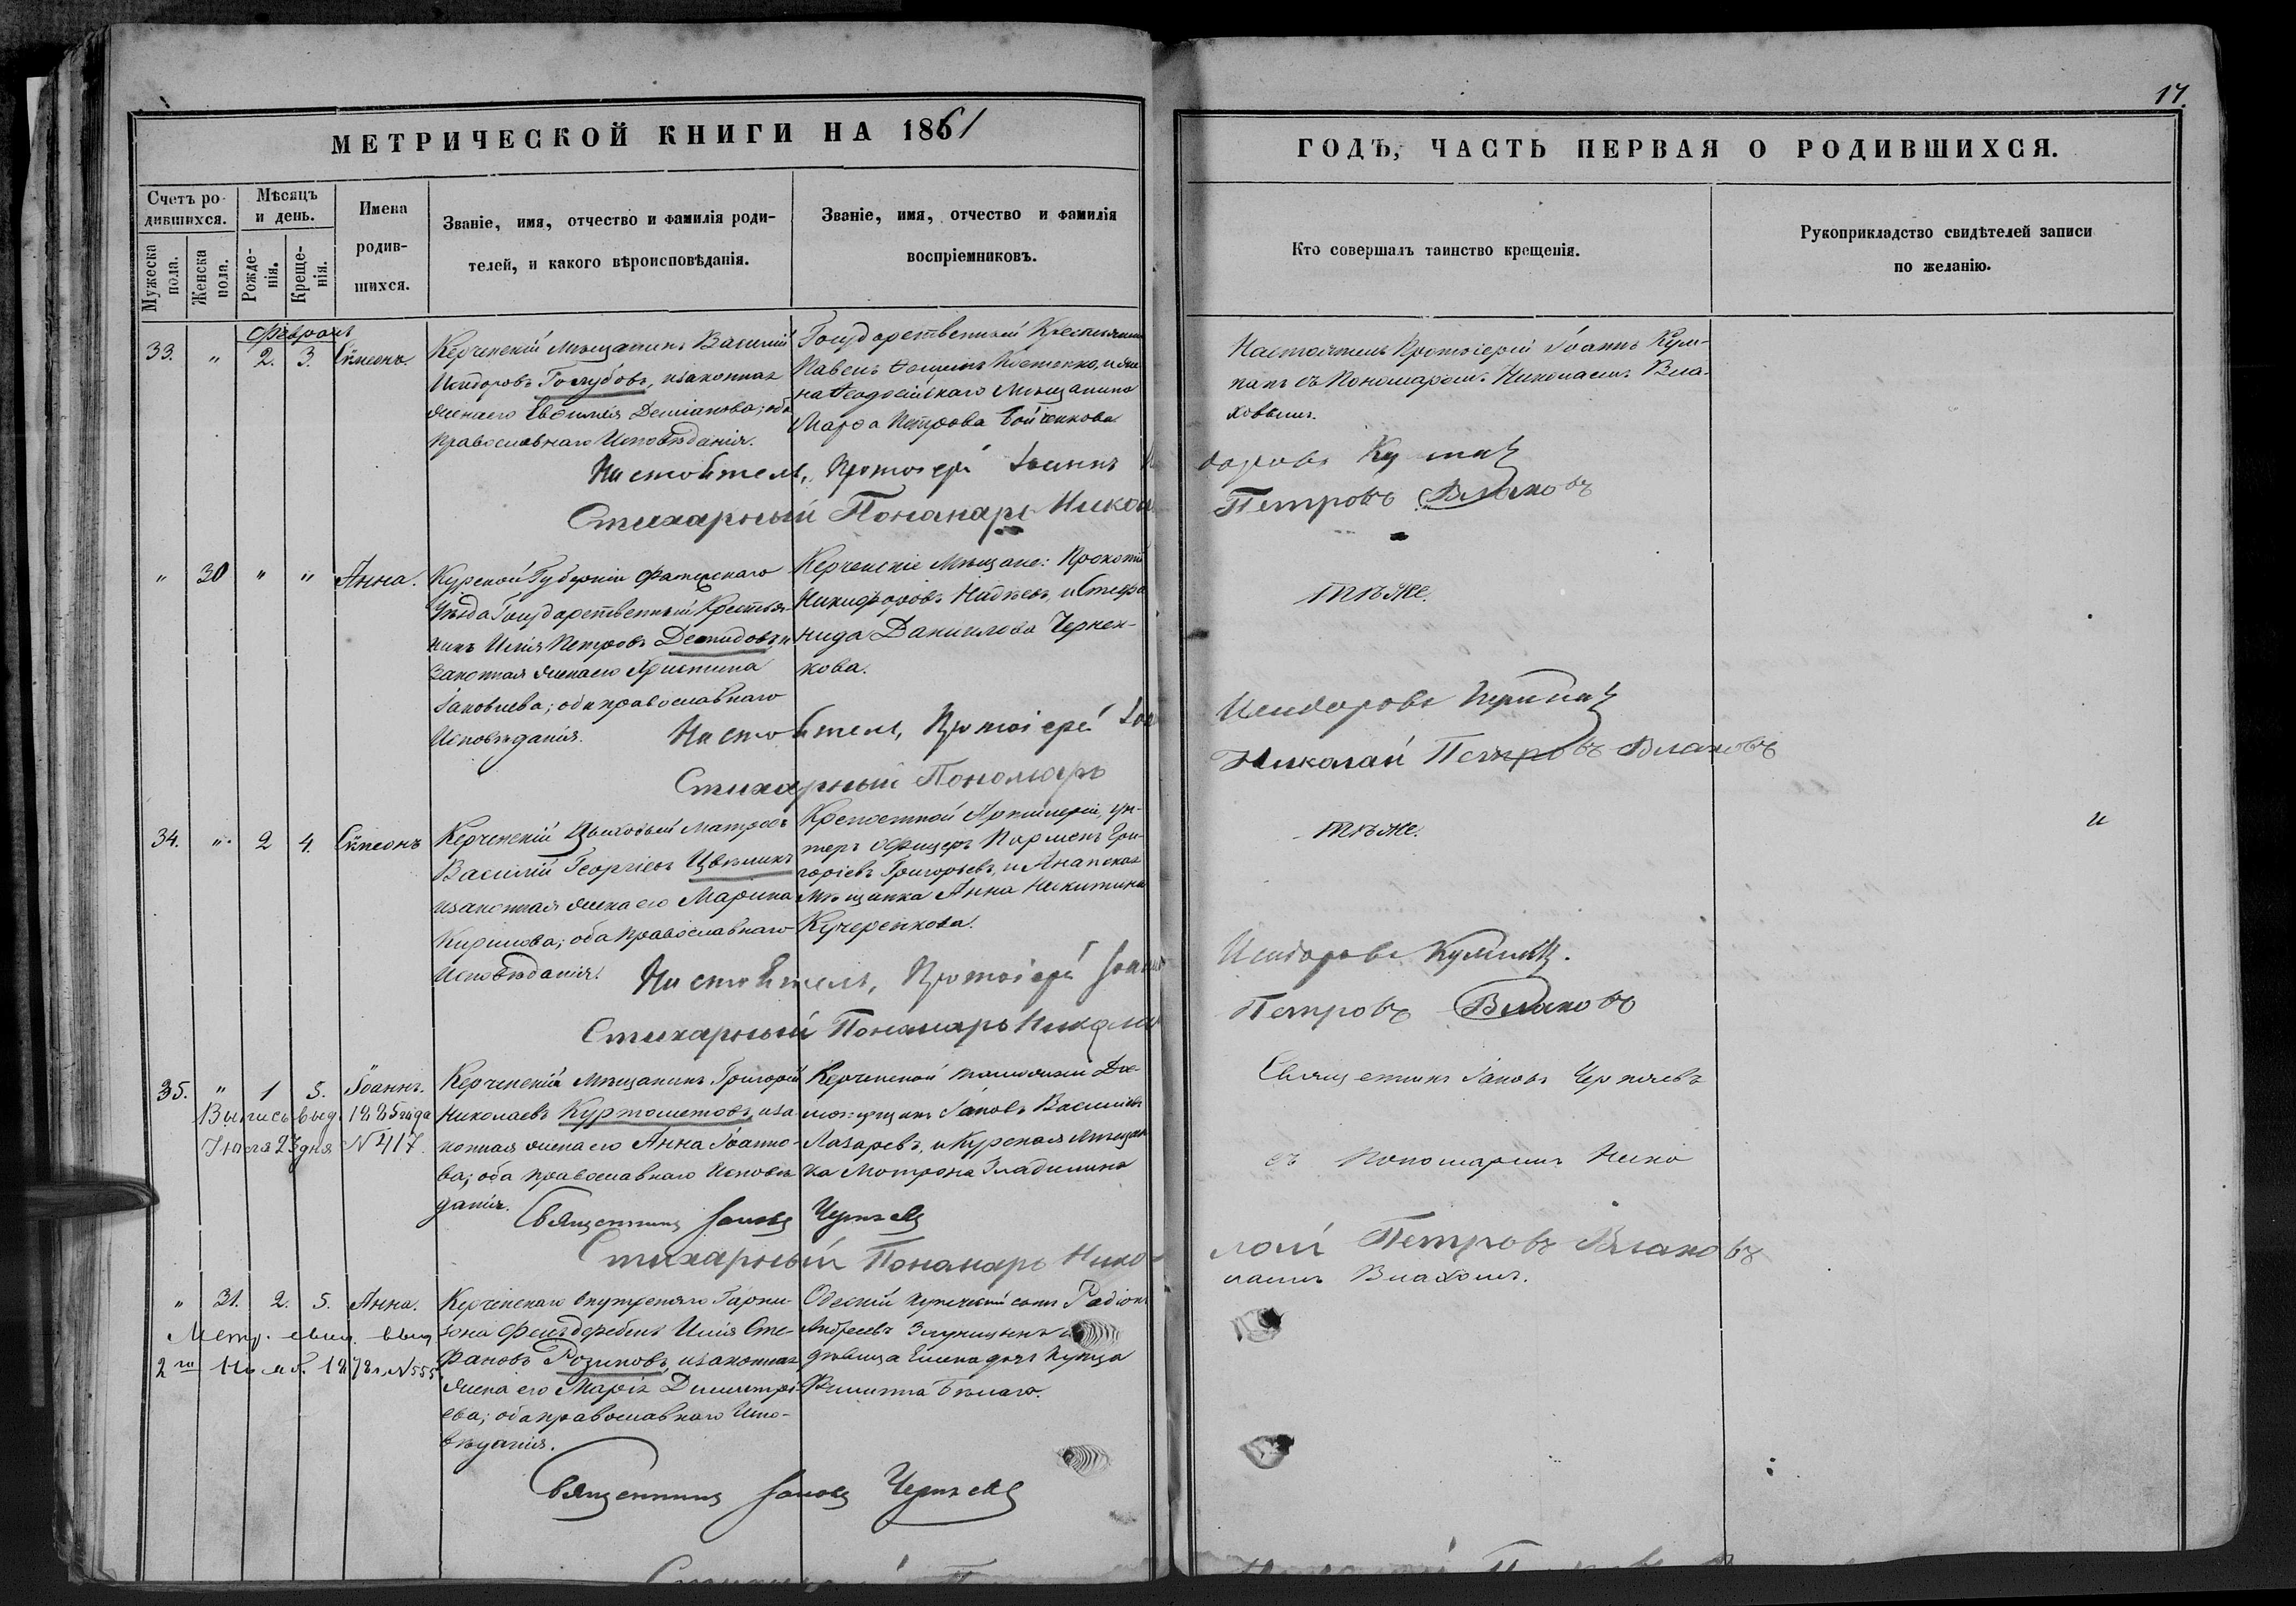 17.
МЕТРИЧЕСКОЙ КНИГИ НА 1861
ГОДЪ, ЧАСТЬ ПЕРВАЯ О РОДИВШИХСЯ.
Счетъ ро-
дившихся.
Мужеска пола.
Женска пола.
Мѣсяцъ
и день.
Рожде-
нія.
Креще-
нія.
Имена
родив-
шихся.
Званіе, имя, отчество и фамилія роди-
телей, и какого вѣроисповѣданія.
Званіе, имя, отчество и фамилія
воспріемниковъ.
Кто совершалъ таинство крещенія.
Рукоприкладство свидѣтелей записи
по желанію.
33. " 2. 3. Сѵмеонъ.
Керченскій Мѣщанинъ Василій
Исидоровъ Голубовъ, и законная
жена его Евфимія Деміанова; оба
православнаго Исповѣданія.
Государственный Крестьянинъ
Павелъ Костенко, и жена
Ѳеодосійскаго Мѣщанина
Марфа Петрова Бойченкова
Настоятель Протоіерей Іоаннъ
съ Пономаремъ Николаемъ Вла-
ховымъ.
Настоятель, Протоіерей Іоаннъ
Стихарный Пономарь Никол
Петровъ Влаховъ
" 30 " " Анна.
Курской Губерніи Фатежскаго
Уѣзда Государственный Крестья-
нинъ Илія Петровъ Демидовъ, и
законная жена его Христина
Іаковлева; оба православнаго
Исповѣданія.
Керченскіе Мѣщане: Прокопій
Никифоровъ и Стефа
нида Данилова Чернен-
кова.
тѣже.
Настоятель, Протоіерей Іоа
Исидоровъ
Стихарный Пономарь
Николай Петровъ Влаховъ
34. " 2 4. Сѵмеонъ
Керченскій Цеховый Матросъ
Василій Георгіевъ Цвѣликъ
и законная жена его Марина
Кирилова; оба православнаго
Исповѣданія.
Крѣпостной Артилеріи, ун-
теръ Офицеръ Парменъ Гри-
горіевъ Григорьевъ, и Анапская
Мѣщанка Анна Никитина
Кучеренкова.
тѣже.
Настоятель, Протоіерей Іоанн
Исидоровъ
Стихарный Пономарь Никола
Петровъ Влаховъ
35. " 1 5. Іоаннъ.
Выпись выд. 1885 года
Іюля 23 дня № 417.
Керченскій Мѣщанинъ Григорій
Николаевъ Куртометовъ, и за
конная жена его Анна Іоанно-
ва; оба православнаго Исповѣ
данія.
Керченской таможни До-
смотрщикъ Іаковъ Василіевъ
Лазаревъ, и Курская Мѣщан
ка Мотрона Владимина
Священникъ Іаковъ Черняевъ
съ Пономаремъ Нико
Священникъ Іаковъ Черняевъ
Стихарный Пономарь Нико-
лай Петровъ Влаховъ
лаемъ Влаховымъ.
" 31. 2. 5. Анна.
Метр. свид. выд
2го Нояб. 1878 г. № 555
Керченскаго внутренняго Гарни-
зона Фельдфебель Илія Сте-
фановъ Розиковъ, и законная
жена его Марія Димитрі-
ева; оба православнаго Испо-
вѣданія.
Одесскій купеческій сынъ Радіонъ
Андреевъ и
дѣвица Елена дочь купца
Филиппа Бѣлаго.
Священникъ Іаковъ Черняевъ